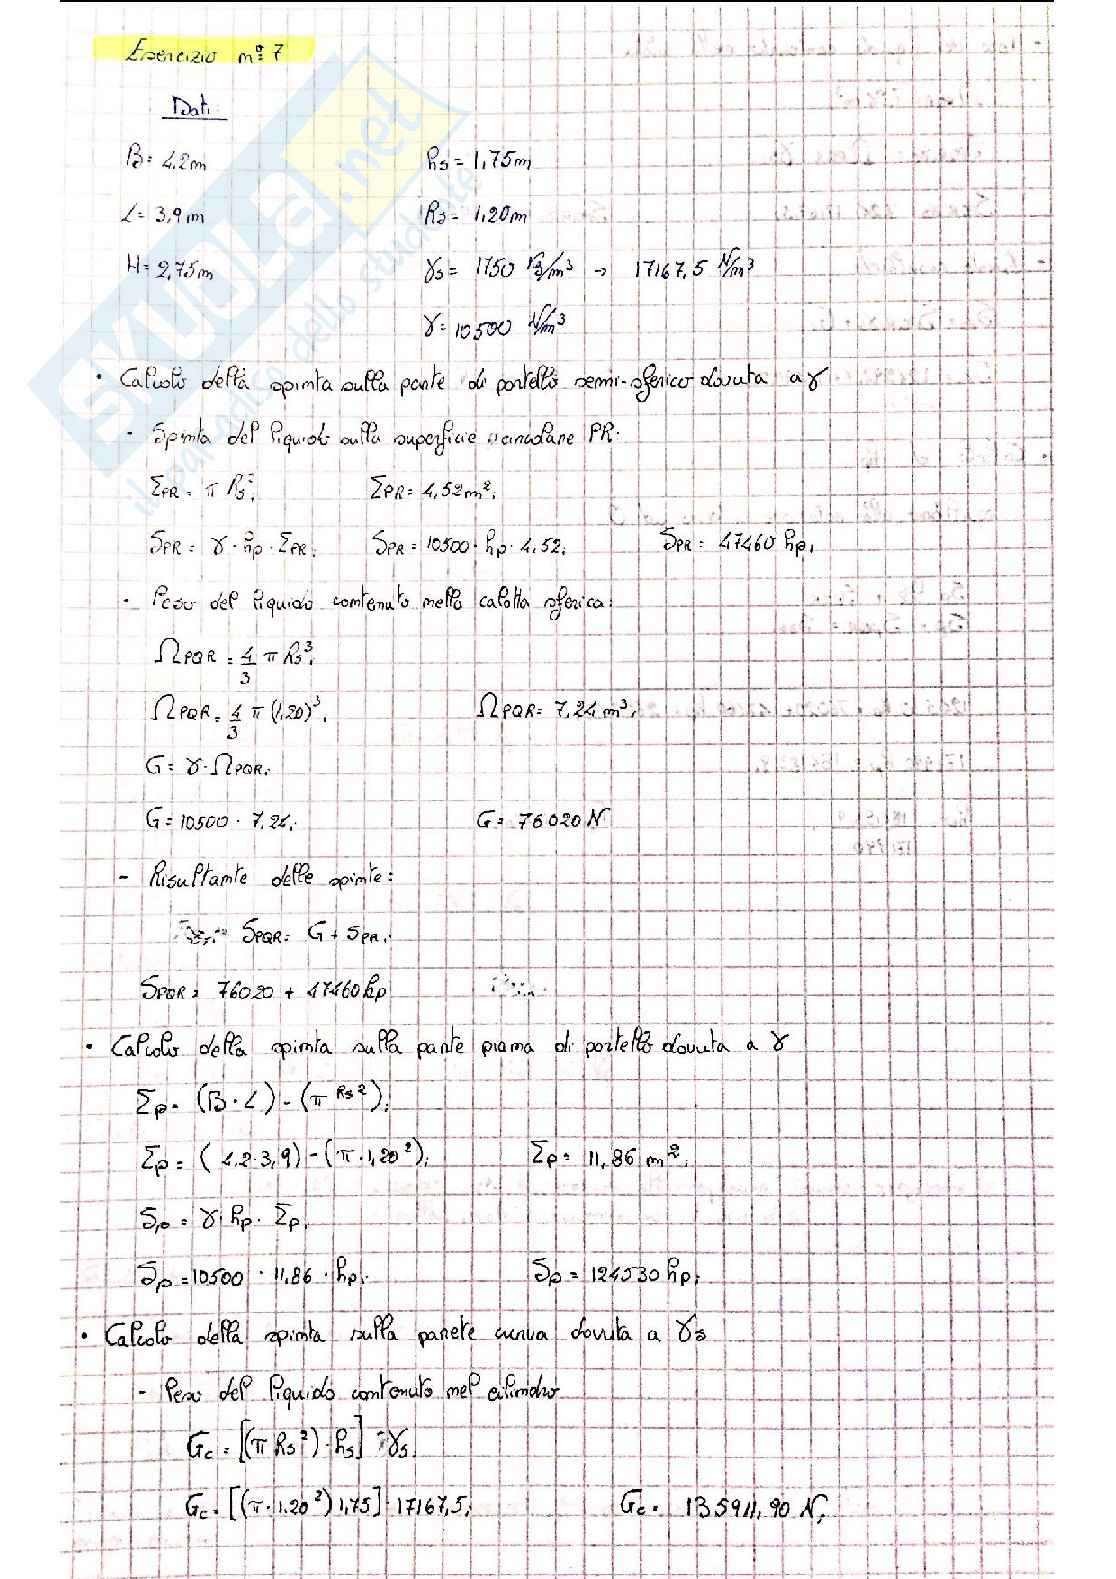 Esercizio nº 7
Dati
B= 4,2m   hs= 1,75m
L= 3,9m   Rs= 1,20m
H= 2,75m   γs= 1750 kg/m³ → 17167,5 N/m³
γ= 10500 N/m³
• Calcolo della spinta sulla parte di portello semi-sferico dovuta a γ
- Spinta del liquido sulla superficie circolare PR:
ΣPR= π Rs²;   ΣPR= 4,52m²;
SPR= γ·hp·ΣPR;   SPR= 10500·hp·4,52;   SPR= 47460 hp;
- Peso del liquido contenuto nella calotta sferica:
ΩPQR= 4/3 π Rs³;
ΩPQR= 4/3 π (1,20)³;   ΩPQR= 7,24 m³;
G= γ·ΩPQR;
G= 10500 · 7,24;   G= 76020 N
- Risultante delle spinte:
SPQR= G+SPR;
SPQR= 76020 + 47460hp
• Calcolo della spinta sulla parte piana di portello dovuta a γ
Σp= (B·L)-(π Rs²);
Σp= (4,2·3,9)-(π·1,20²);   Σp= 11,86 m²;
Sp= γ·hp·Σp;
Sp= 10500 · 11,86 · hp;   Sp= 124530 hp;
• Calcolo della spinta sulla parete curva dovuta a γs
- Peso del liquido contenuto nel cilindro
Gc= [(π Rs²)·hs] · γs;
Gc= [(π·1,20²)1,75]·17167,5;   Gc= 135911,90 N;
SKUOLA.net
il paradiso dello studente